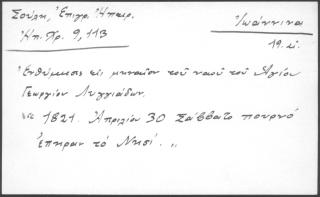 Σούλη, Ἐπιγρ. Ἠπειρ. Ἰωάννινα
Ἠπ. Χρ. 9, 113 19. αἰ.
Ἐνθύμησις εἰς μηναῖον τοῦ ναοῦ τοῦ Ἁγίου
Γεωργίου Λυγγιάδων.
1821. Ἀπριλίου 30 Σάββατο πουρνό
ἐπῆραν τὸ Νησί.